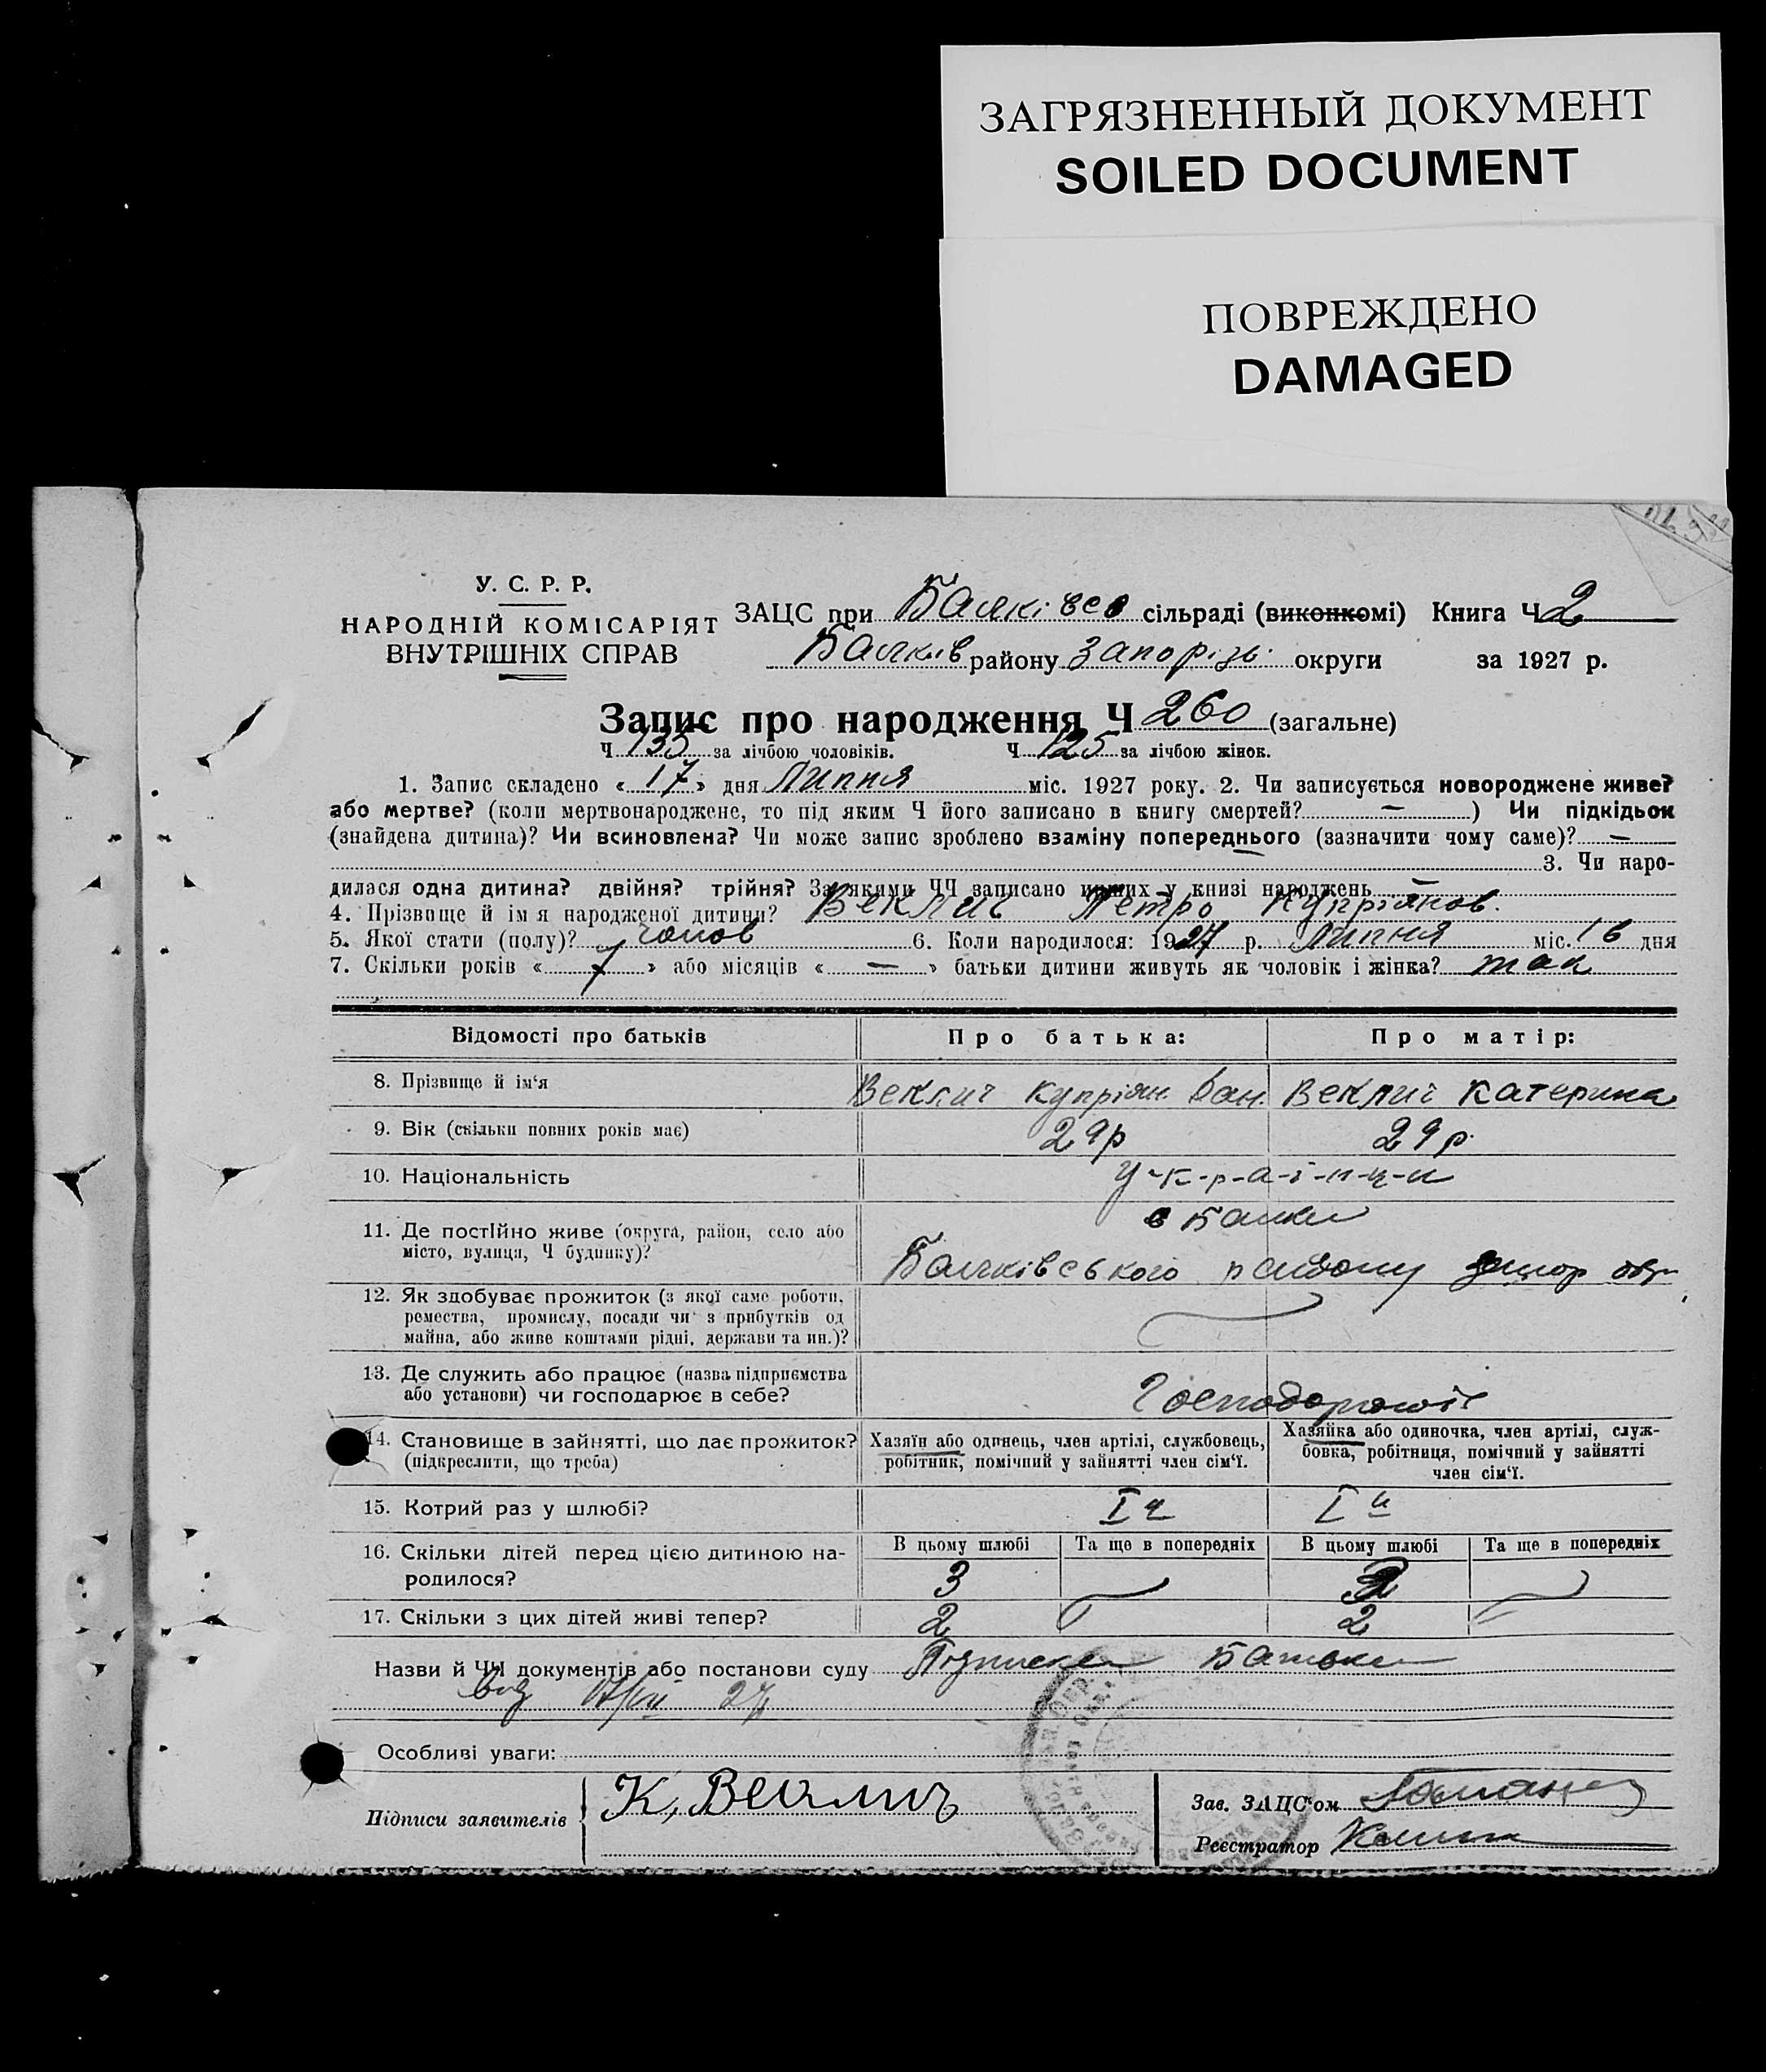 ЗАГРЯЗНЕННЫЙ ДОКУМЕНТ
SOILED DOCUMENT
ПОВРЕЖДЕНО
DAMAGED
У. С. Р. Р.
НАРОДНІЙ КОМІСАРІЯТ
ВНУТРІШНІХ СПРАВ
ЗАЦС при Балківсо сільраді (виконкомі) Книга Ч 2
Балків району Запорізь. округи за 1927 р.
Запис про народження Ч 260 (загальне)
Ч 135 за лічбою чоловіків. Ч 125 за лічбою жінок.
1. Запис складено « 17 » дня Липня міс. 1927 року. 2. Чи записується новороджене живе?
або мертве? (коли мертвонароджене, то під яким Ч його записано в книгу смертей? — ) Чи підкідьок
(знайдена дитина)? Чи всиновлена? Чи може запис зроблено взаміну попереднього (зазначити чому саме)? —
3. Чи наро-
дилася одна дитина? двійня? трійня? За якими ЧЧ записано инших у книзі народжень —
4. Прізвище й ім я народженої дитини? Веклич Петро Купріянов.
5. Якої стати (полу)? чолов 6. Коли народилося: 1927 р. Липня міс. 16 дня
7. Скільки років « 7 » або місяців « — » батьки дитини живуть як чоловік і жінка? так
Відомості про батьків Про батька: Про матір:
8. Прізвище й ім'я Веклич Купріян. Ван. Веклич Катерина
9. Вік (скільки повних років має) 29р 29р.
10. Національність У-к-р-а-ї-н-ц-и
11. Де постійно живе (округа, район, село або
місто, вулиця, Ч будинку)?
с Балки
Балківського району Запор окр
12. Як здобуває прожиток (з якої саме роботи,
ремества, промислу, посади чи з прибутків од
майна, або живе коштами рідні, держави та ин.)?
13. Де служить або працює (назва підприємства
або установи) чи господарює в себе?
14. Становище в зайнятті, що дає прожиток?
(підкреслити, що треба)
Хазяїн або одинець, член артілі, службовець,
робітник, помічний у зайнятті член сім'ї.
Хазяйка або одиночка, член артілі, служ-
бовка, робітниця, помічний у зайнятті
член сім'ї.
15. Котрий раз у шлюбі? I й I й
16. Скільки дітей перед цією дитиною на-
родилося?
В цьому шлюбі Та ще в попередніх В цьому шлюбі Та ще в попередніх
3
17. Скільки з цих дітей живі тепер? 2 2
Назви й ЧЧ документів або постанови суду Підписка Батька
від 17/VII 27р
Особливі уваги:
Підписи заявителів К, Веклич
Зав. ЗАЦС'ом
Реєстратор